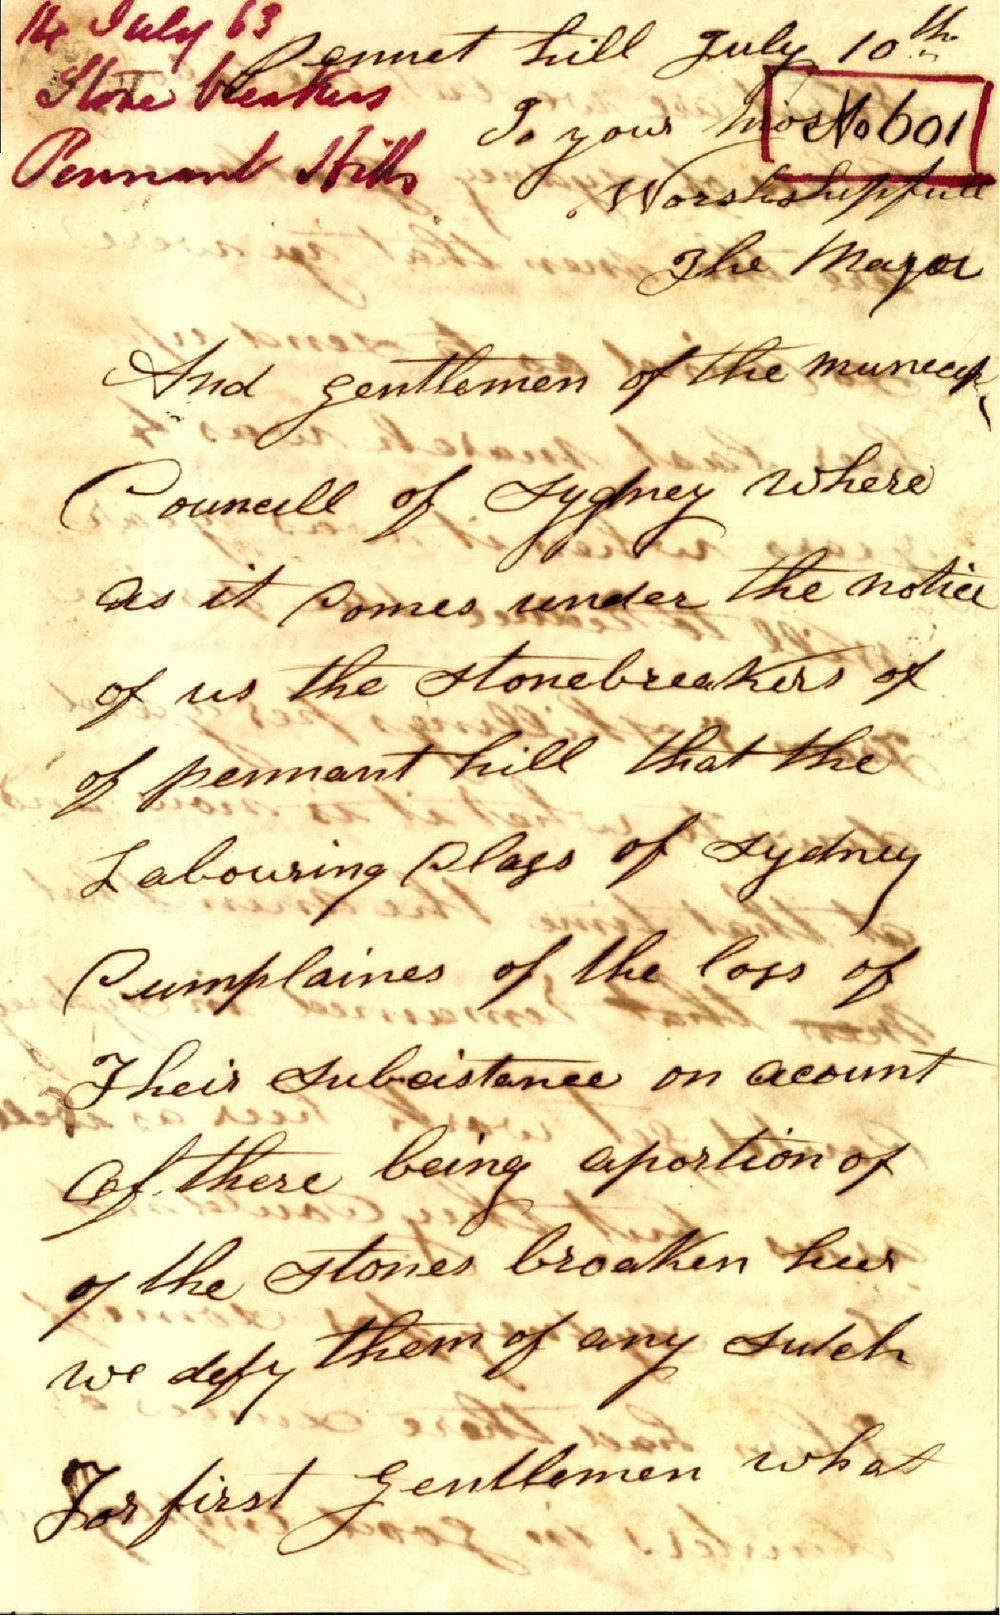 14 July 63
Stone breakers
Pennant Hills
No 601
Pennet hill July 10th
To your most
Worshshipfull
The Mayor
And gentlemen of the municip
Councill of Sydney where
as it comes under the notice
of us the stonebreakers of
of pennant hill that the
Labouring Class of Sydney
Cumplaines of the loss of
Their subcistence on acount
of there being aportion of
of the stones broaken heer
we defy them of any sutch
For first Gentlemen what